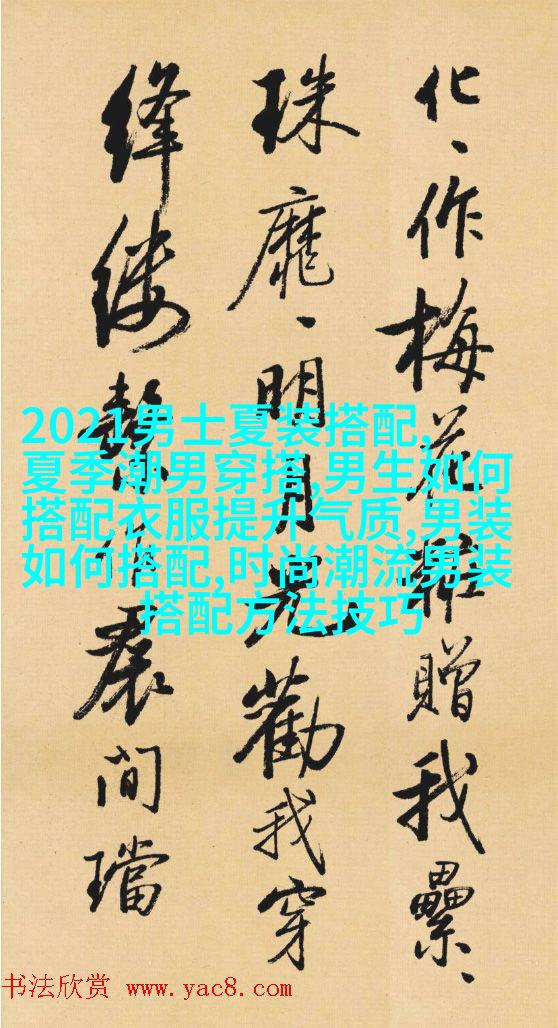 化、作梅花誰贈我纍、
珠、明月光勸我穿
絳縷裠間璫
2021男士夏装搭配,
夏季潮男穿搭,男生如何
搭配衣服提升气质,男装
如何搭配,时尚潮流男装
搭配方法技巧
书法欣赏 www.yac8.com